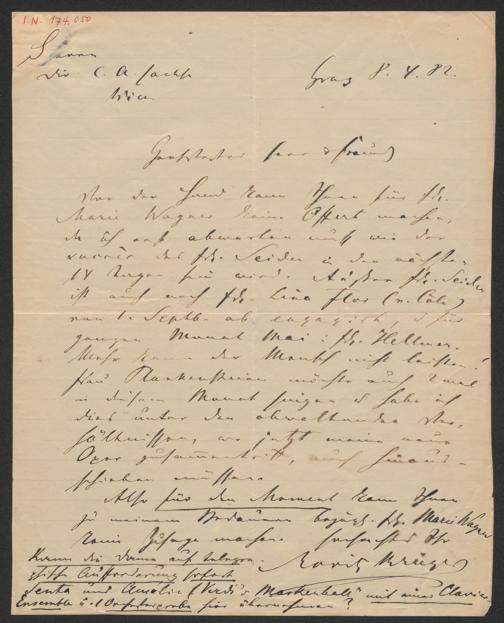 I.N. 174.050
Herrn
Dir C. A. Sachse
Wien
Graz 8. 4. 82.
Geehrtester Herr & Freund
Vor der Hand kann Ihnen für Frl.
Marie Wagner keine Offert machen,
da ich erst abwarten muß wie der
des Frl. Seiden in den nächsten
14 Tagen sein wird. Außer Frl. Seiden
ist auch noch Frl. Lina Flor (v. Cöln)
von 1. Septb. ab engagirt, & für
ganzen Monat Mai: Fr. Hellmer.
Mehr kann der Mensch nicht leisten!
Frau möchte auch 2 mal
in diesem Monat singen & habe ich
dies unter den obwaltenden Ver-
hältnissen, wo jetzt meine neue
Oper zusammentritt, auch hinaus-
schieben müssen.
Also für den Moment kann Ihnen
zu meinem Bedauern bezügl. Frl. Marie Wagner
keine Zusage machen. Ihr
Moritz Krüger
Kann die Dame auf telegra-
phische Aufforderung sofort
Senta und Amelia (Verdi's Maskenball) mit einer Clavier
Ensemble u. 1 Orchesterprobe hier übernehmen?